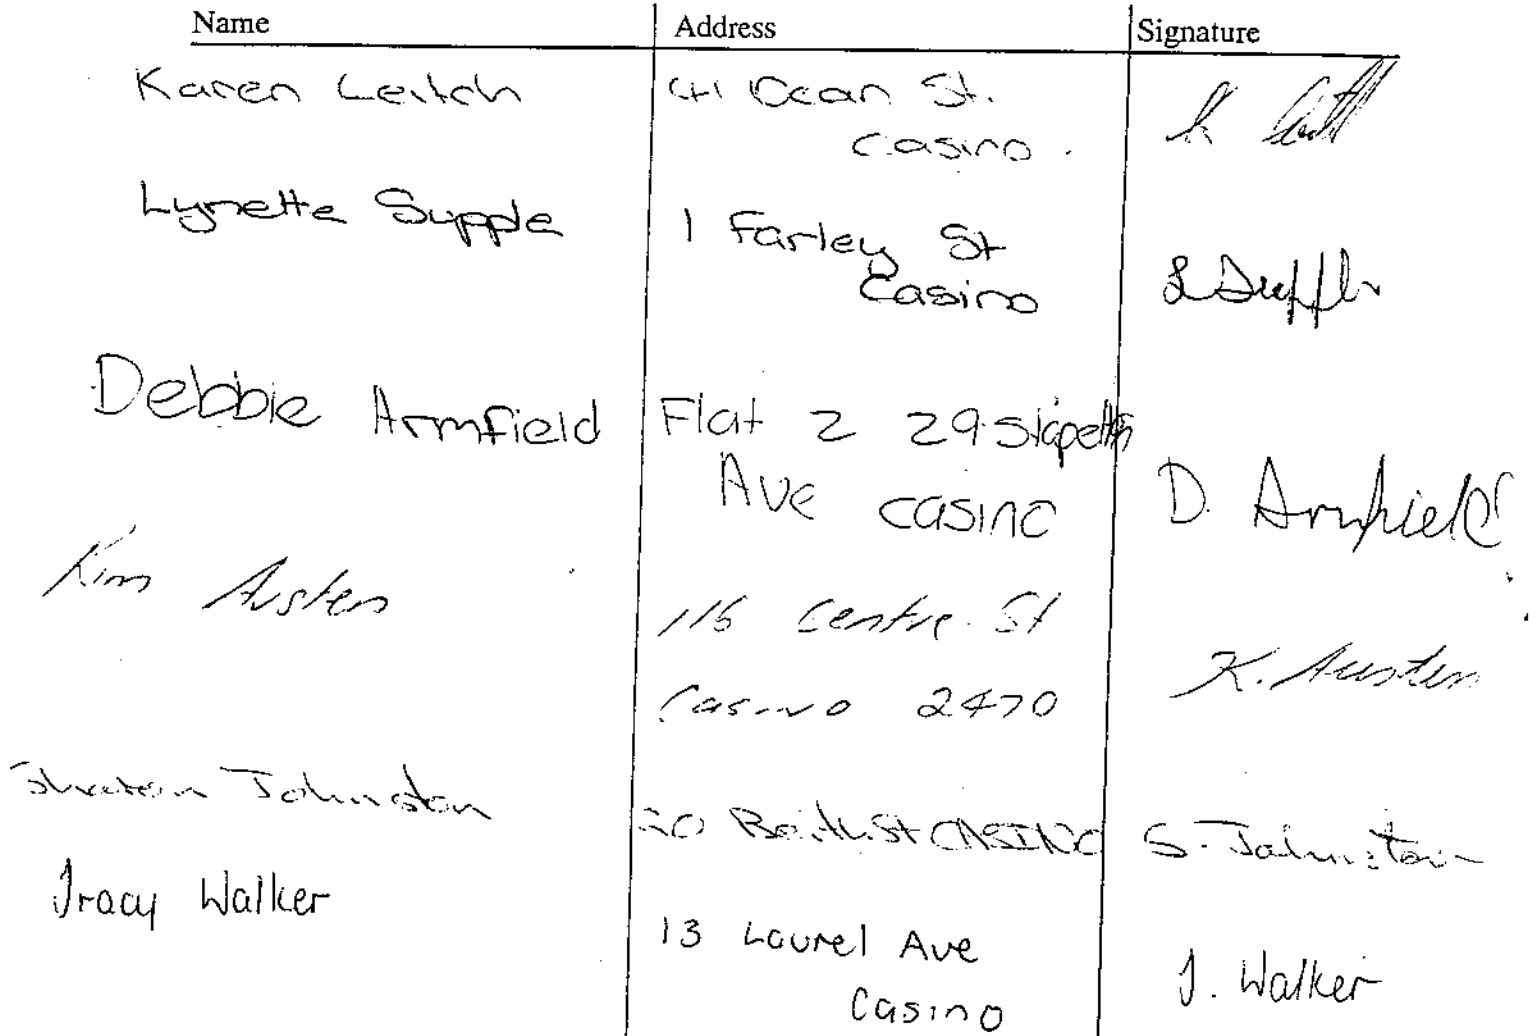 Name Address Signature
Karen Leitch 41 Dean St.
Casino.
Lynette Supple 1 Farley St
Casino
Debbie Armfield Flat 2 29 Stapelton
Ave Casino D. Armfield
Kim Austen 116 Centre St
Casino 2470 K. Austen
Sharon Johnston 20 St CASINO S. Johnston
Tracy Walker
13 Laurel Ave
Casino T. Walker